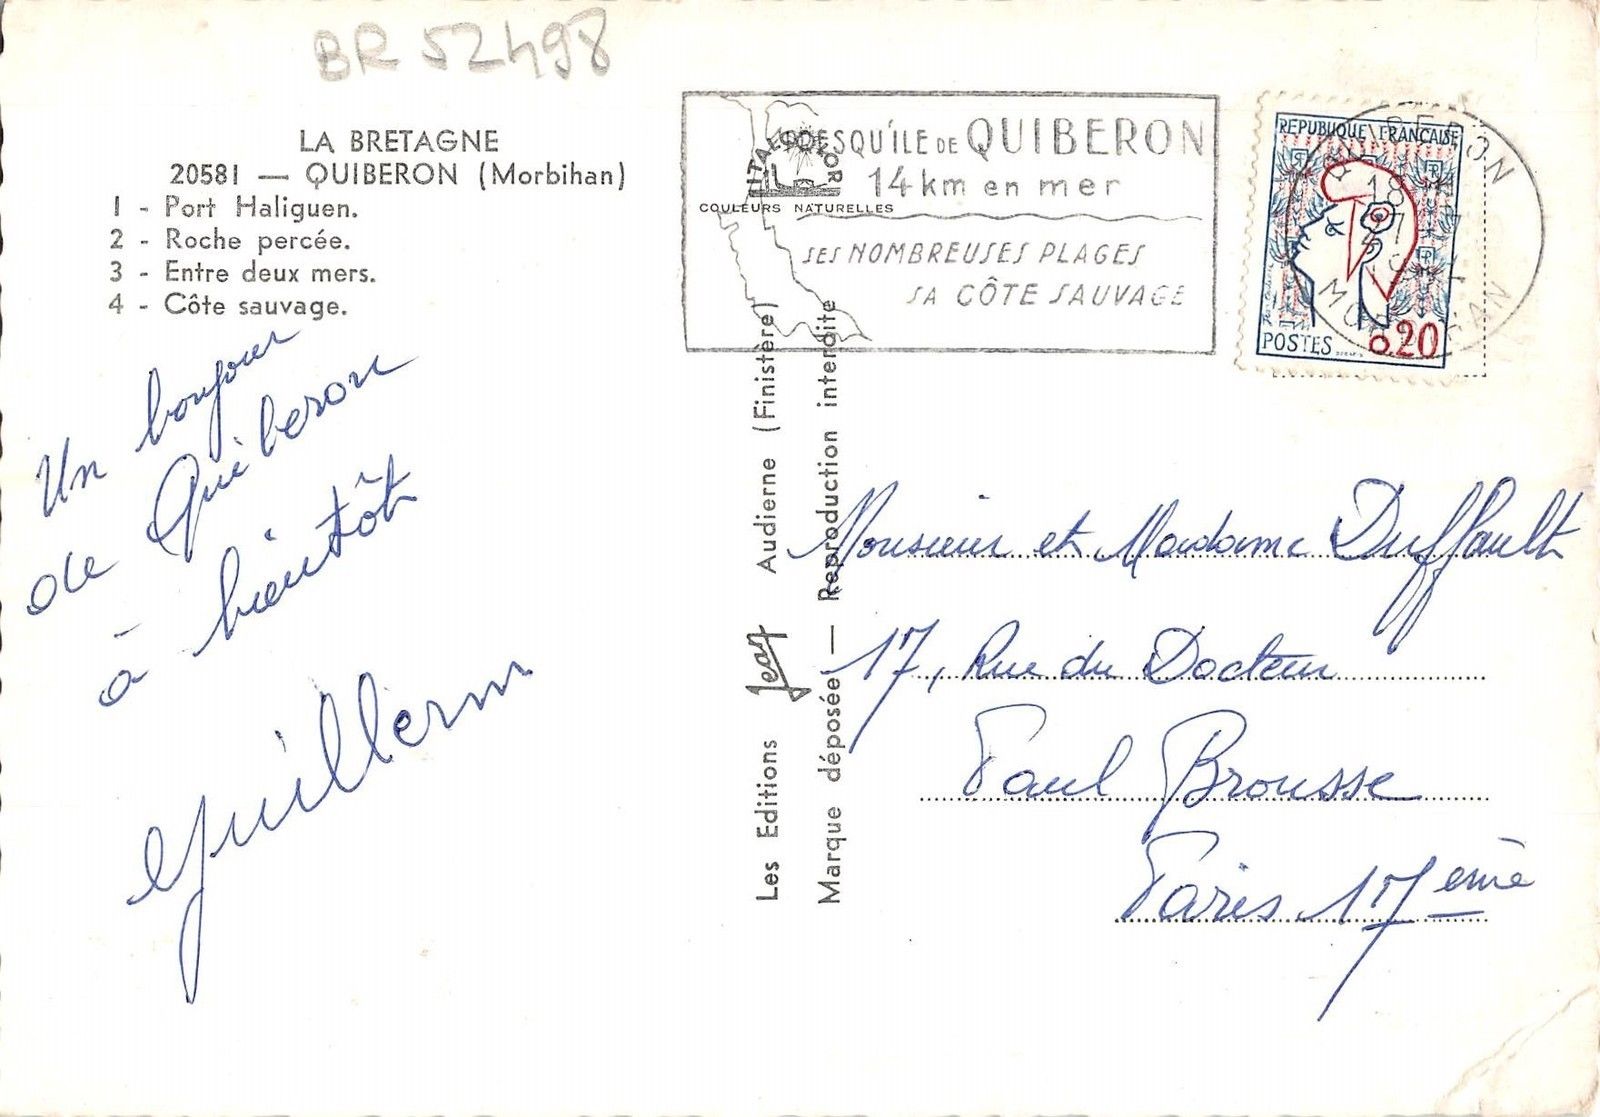 BR 52498
LA BRETAGNE
20581 — QUIBERON (Morbihan)
1 - Port Haliguen.
2 - Roche percée.
3 - Entre deux mers.
4 - Côte sauvage.
Un bonjour
de Quiberon
à bientôt
Guillerm
PRESQU'ILE DE QUIBERON
14 km en mer
SES NOMBREUSES PLAGES
SA CÔTE SAUVAGE
ITALCOLOR
COULEURS NATURELLES
REPUBLIQUE FRANCAISE
POSTES 0.20
QUIBERON
18
MORBIHAN
Les Editions Jean Audierne (Finistère)
Marque déposée — Reproduction interdite
Monsieur et Madame Duffault
17, Rue du Docteur
Paul Brousse
Paris 17ème